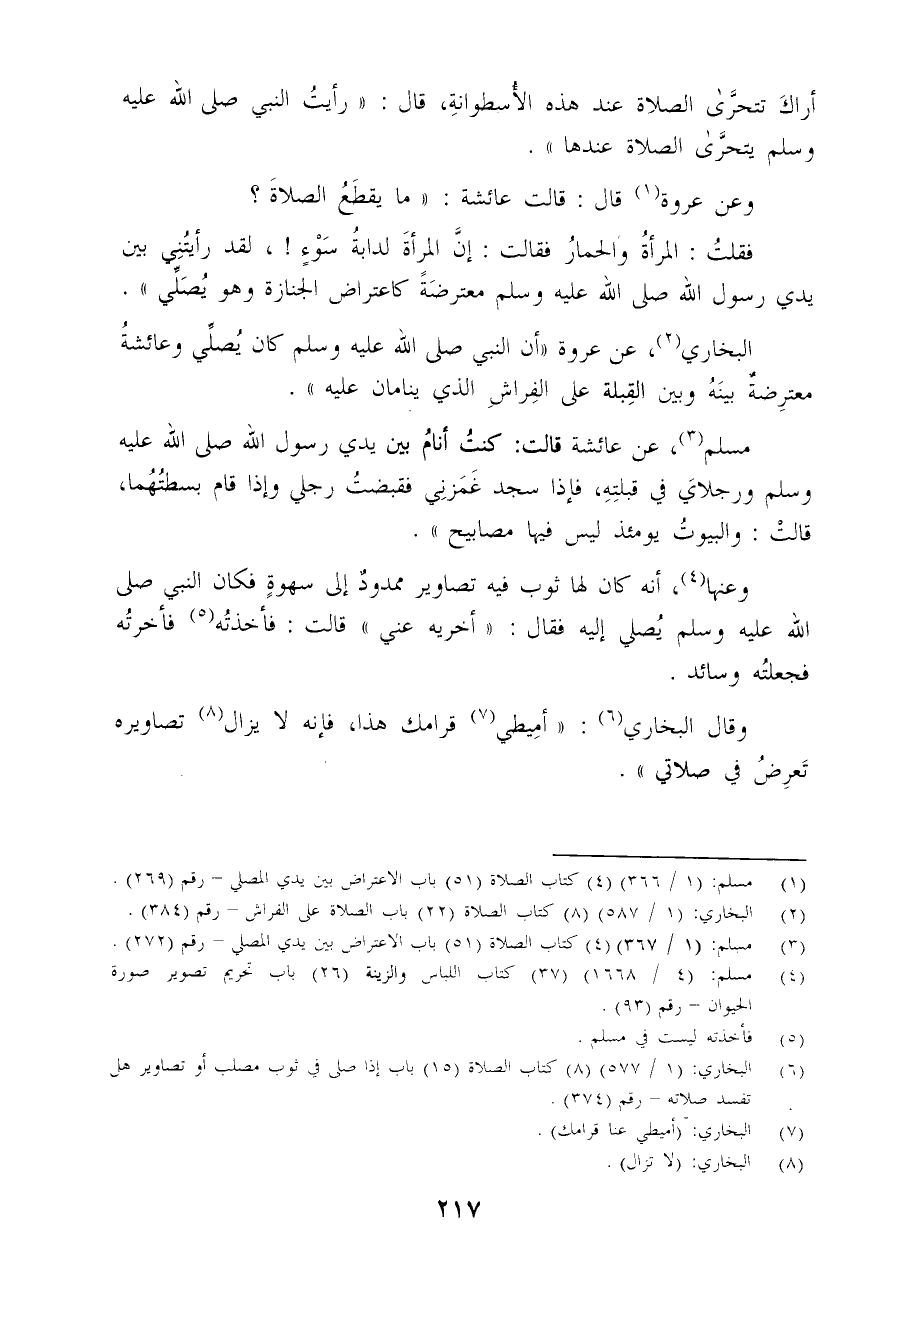 أراكَ تتحرَّىٰ الصلاة عند هذه الأُسطوانةِ، قال : « رأيتُ النبي صلى الله عليه
وسلم يتحرَّىٰ الصلاة عندها » .
وعن عروة(١) قال : قالت عائشة : « ما يقطَعُ الصلاةَ ؟
فقلتُ : المرأةُ والحمارُ فقالت : إنَّ المرأةَ لدابةُ سَوْءٍ ! ، لقد رأيتُنِي بين
يدي رسول الله صلى الله عليه وسلم معترضَةً كاعتراض الجنازة وهو يُصَلِّي » .
البخاري(٢)، عن عروة «أن النبي صلى الله عليه وسلم كان يُصلِّي وعائشةُ
معترِضةٌ بينَهُ وبين القِبلة على الفِراشِ الذي ينامان عليه » .
مسلم(٣)، عن عائشة قالت: كنتُ أنامُ بين يدي رسول الله صلى الله عليه
وسلم ورجلايَ في قبلتِهِ، فإذا سجد غَمَزنِي فقبضتُ رجلي وإذا قام بسطتُهُما،
قالتْ : والبيوتُ يومئذ ليس فيها مصابيح » .
وعنها(٤)، أنه كان لها ثوب فيه تصاوير ممدودٌ إلى سهوةٍ فكان النبي صلى
الله عليه وسلم يُصلي إليه فقال : « أخريه عني » قالت : فأخذتُه(٥) فأخرتُه
فجعلتُه وسائد .
وقال البخاري(٦) : « أمِيطي(٧) قرامك هذا، فإنه لا يزال(٨) تصاويره
تَعرِضُ في صلاتي » .
(١) مسلم: (١ / ٣٦٦) (٤) كتاب الصلاة (٥١) باب الاعتراض بين يدي المصلي – رقم (٢٦٩) .
(٢) البخاري: (١ / ٥٨٧) (٨) كتاب الصلاة (٢٢) باب الصلاة على الفراش – رقم (٣٨٤) .
(٣) مسلم: (١ / ٣٦٧) (٤) كتاب الصلاة (٥١) باب الاعتراض بين يدي المصلي – رقم (٢٧٢) .
(٤) مسلم: (٤ / ١٦٦٨) (٣٧) كتاب اللباس والزينة (٢٦) باب تحريم تصوير صورة
الحيوان – رقم (٩٣) .
(٥) فأخذته ليست في مسلم .
(٦) البخاري: (١ / ٥٧٧) (٨) كتاب الصلاة (١٥) باب إذا صلى في ثوب مصلب أو تصاوير هل
تفسد صلاته – رقم (٣٧٤) .
(٧) البخاري: (أميطي عنا قرامك) .
(٨) البخاري: (لا تزال) .
٢١٧